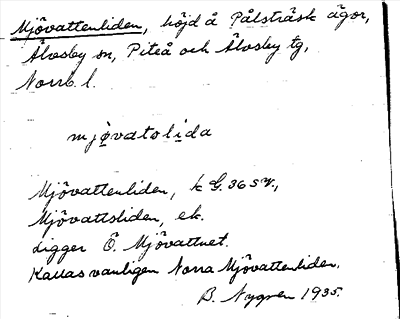 Mjövattenliden, höjd å Pålsträsk ägor,
Älvsby sn, Piteå och Älvsby tg,
Norrb. l.
mjövatolida
Mjövattenliden, k G. 36 SV.,
Mjövattsliden, ek.
Ligger Ö. Mjövattnet.
Kallas vanligen Norra Mjövattenliden.
B. Nygren 1935.